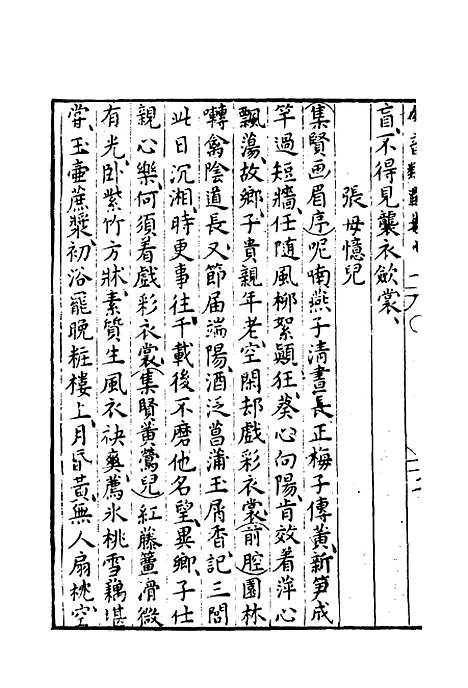 盲、不得見襲衣歛裳、
張母憶兒
集賢画眉序呢喃燕子清晝長正梅子傳黃、新笋成
竿過短牆、任隨風柳絮顛狂、葵心向陽、肯效着萍心
飄蕩、故鄉、子貴親年老空閑却戯彩衣裳、前腔園林
囀禽陰道長、又節届端陽、酒泛菖蒲玉屑香、記三閭
此日沉湘、時更事往、千載後不磨他名望、異鄉、子仕
親心樂、何須着戲彩衣裳、集賢黃鶯兒紅藤簟滑微
有光、卧紫竹方牀、素質生風衣袂爽、薦氷桃雪藕堪
嘗、玉壷蔗漿、初浴罷晚粧樓上、月昏黃、無人扇枕、空